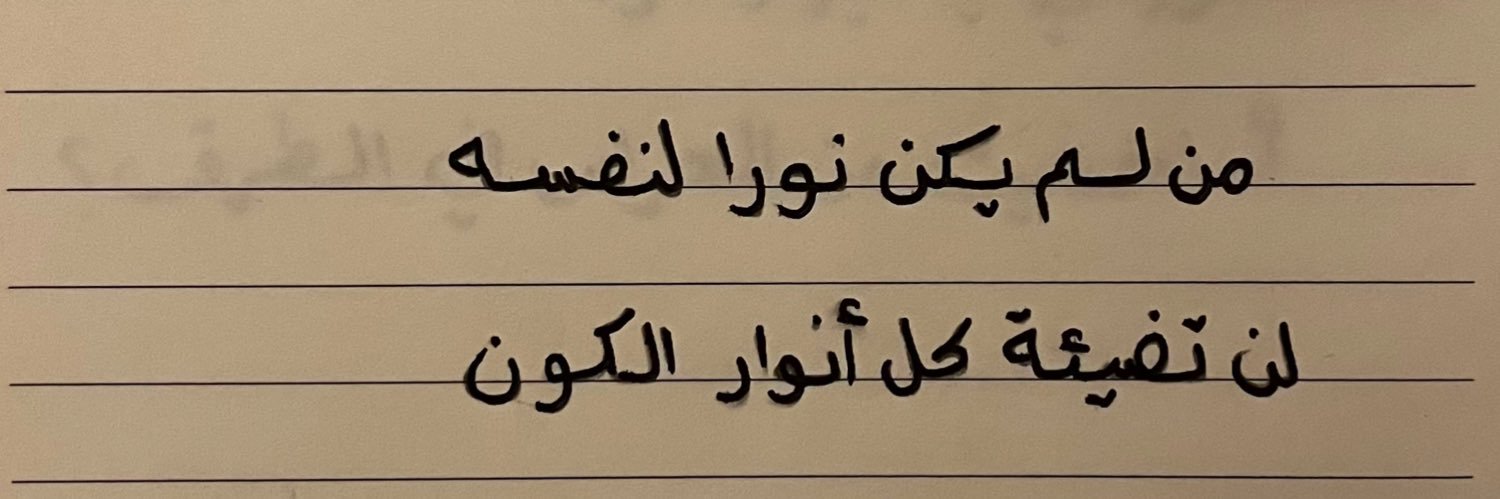 من لم يكن نورا لنفسه
لن تضيئة كل أنوار الكون